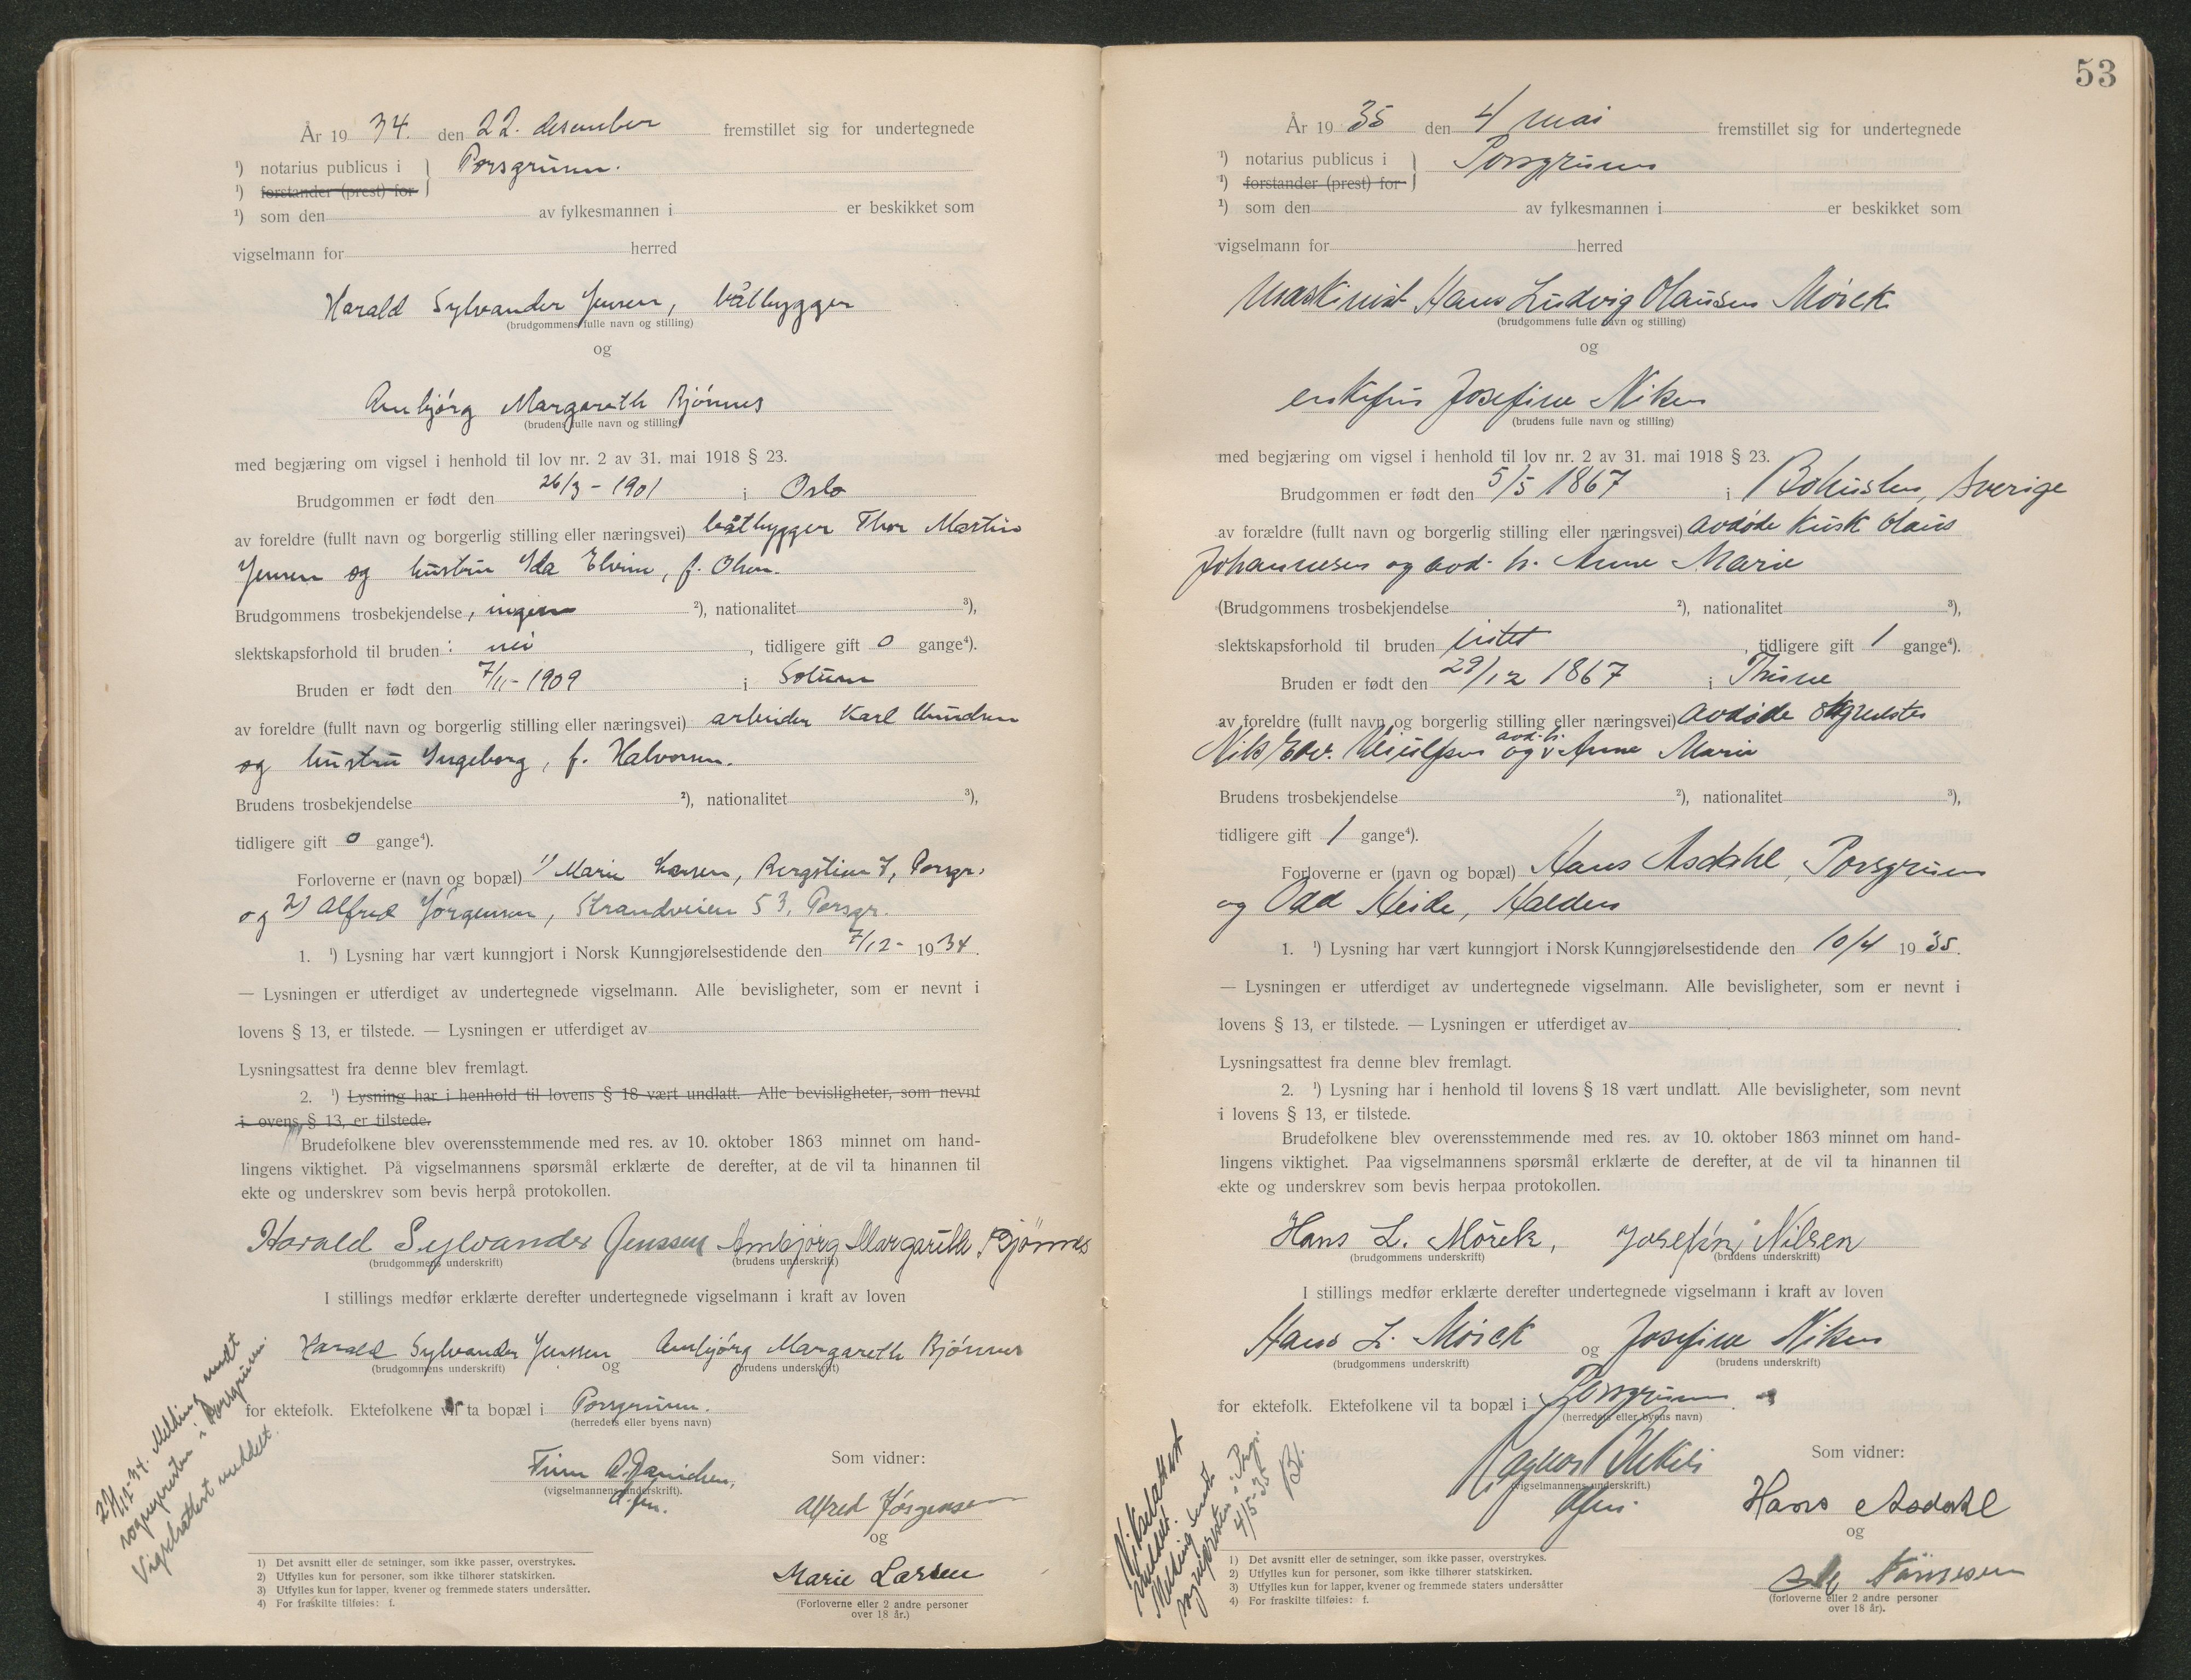 År 19 34. den 22. desember fremstillet sig for undertegnede
¹) notarius publicus i } Porsgrunn.
¹) forstander (prest) for
¹) som den av fylkesmannen i er beskikket som
vigselmann for herred
Harald Sylvander Jensen, båtbygger
(brudgommens fulle navn og stilling)
og
Ambjørg Margareth Bjønnes
(brudens fulle navn og stilling)
med begjæring om vigsel i henhold til lov nr. 2 av 31. mai 1918 § 23.
Brudgommen er født den 26/3 - 1901 i Oslo
av foreldre (fullt navn og borgerlig stilling eller næringsvei) båtbygger Thor Martin
Jensen og hustru Ida Elvine, f. Olsen.
Brudgommens trosbekjendelse, ingen ²), nationalitet ³),
slektskapsforhold til bruden : nei , tidligere gift 0 gange⁴).
Bruden er født den 7/11 - 1909 i Solum
av foreldre (fullt navn og borgerlig stilling eller næringsvei) arbeider Karl Amundsen
og hustru Ingeborg, f. Halvorsen.
Brudens trosbekjendelse ²), nationalitet ³),
tidligere gift 0 gange⁴).
Forloverne er (navn og bopæl) 1) Marie Larsen, Bergstien 7, Porsgr.
og 2) Alfred Jørgensen, Strandveien 53, Porsgr.
1. ¹) Lysning har vært kunngjort i Norsk Kunngjørelsestidende den 7/12 - 1934.
— Lysningen er utferdiget av undertegnede vigselmann. Alle bevisligheter, som er nevnt i
lovens § 13, er tilstede. — Lysningen er utferdiget av
Lysningsattest fra denne blev fremlagt.
2. ¹) Lysning har i henhold til lovens § 18 vært undlatt. Alle bevisligheter, som nevnt
i ovens § 13, er tilstede.
Brudefolkene blev overensstemmende med res. av 10. oktober 1863 minnet om hand-
lingens viktighet. På vigselmannens spørsmål erklærte de derefter, at de vil ta hinannen til
ekte og underskrev som bevis herpå protokollen.
Harald Sylvander Jenssen Ambjørg Margarith Bjønnes
(brudgommens underskrift) (brudens underskrift)
I stillings medfør erklærte derefter undertegnede vigselmann i kraft av loven
Harald Sylvander Jenssen og Ambjørg Margareth Bjønnes
(brudgommens underskrift) (brudens underskrift)
for ektefolk. Ektefolkene vil ta bopæl i Porsgrunn.
(herredets eller byens navn)
Finn
(vigselmannens underskrift).
Som vidner:
Alfred Jørgensen
og
Marie Larsen
(Forloverne eller 2 andre personer
over 18 år.)
22/12-34. Melding sendt
sognepresten i Porsgrunn
Vigselsattest meddelt.
1) Det avsnitt eller de setninger, som ikke passer, overstrykes.
2) Utfylles kun for personer, som ikke tilhører statskirken.
3) Utfylles kun for lapper, kvener og fremmede staters undersåtter.
4) For fraskilte tilføies: f.
53
År 19 35 den 4 mai fremstillet sig for undertegnede
¹) notarius publicus i } Porsgrunn
¹) forstander (prest) for
¹) som den av fylkesmannen i er beskikket som
vigselmann for herred
Maskinist Hans Ludvig Olausen Mörck
(brudgommens fulle navn og stilling)
og
enkefru Josefine Nilsen
(brudens fulle navn og stilling)
med begjæring om vigsel i henhold til lov nr. 2 av 31. mai 1918 § 23.
Brudgommen er født den 5/5 1867 i Bohuslen, Sverige
av forældre (fullt navn og borgerlig stilling eller næringsvei) avdøde kusk Olaus
Johannesen og avd. h. Anne Marie
(Brudgommens trosbekjendelse ²), nationalitet ³),
slektskapsforhold til bruden intet , tidligere gift 1 gange⁴).
Bruden er født den 29/12 1867 i
av foreldre (fullt navn og borgerlig stilling eller næringsvei) avdøde
og avd. h. Anne Marie
Brudens trosbekjendelse ²), nationalitet ³),
tidligere gift 1 gange⁴).
Forloverne er (navn og bopæl) Hans Asdahl, Porsgrunn
og Odd Heide, Halden
1. ¹) Lysning har vært kunngjort i Norsk Kunngjørelsestidende den 10/4 1935.
— Lysningen er utferdiget av undertegnede vigselmann. Alle bevisligheter, som er nevnt i
lovens § 13, er tilstede. — Lysningen er utferdiget av
Lysningsattest fra denne blev fremlagt.
2. ¹) Lysning har i henhold til lovens § 18 vært undlatt. Alle bevisligheter, som nevnt
i lovens § 13, er tilstede.
Brudefolkene blev overensstemmende med res. av 10. oktober 1863 minnet om hand-
lingens viktighet. Paa vigselmannens spørsmål erklærte de derefter, at de vil ta hinannen til
ekte og underskrev som bevis herpaa protokollen.
Hans L. Mörck, Josefine Nilsen
(brudgommens underskrift) (brudens underskrift)
I stillings medfør erklærte derefter undertegnede vigselmann i kraft av loven
Hans L. Mörck og Josefine Nilsen
(brudgommens underskrift) (brudens underskrift)
for ektefolk. Ektefolkene vil ta bopæl i Porsgrunn.
(herredets eller byens navn)
(vigselmannens underskrift.)
Som vidner:
Hans Asdahl
og
(forloverne eller 2 andre personer
over 18 år).
Vikselattest
meddelt.
Melding sendt
sognepresten i Porsgr.
4/5-35
1) Det avsnitt eller de setninger, som ikke passer, overstrykes.
2) Utfylles kun for personer, som ikke tilhører statskirken.
3) Utfylles kun for lapper, kvener og fremmede staters undersåtter
4) For fraskilte tilføies: f.